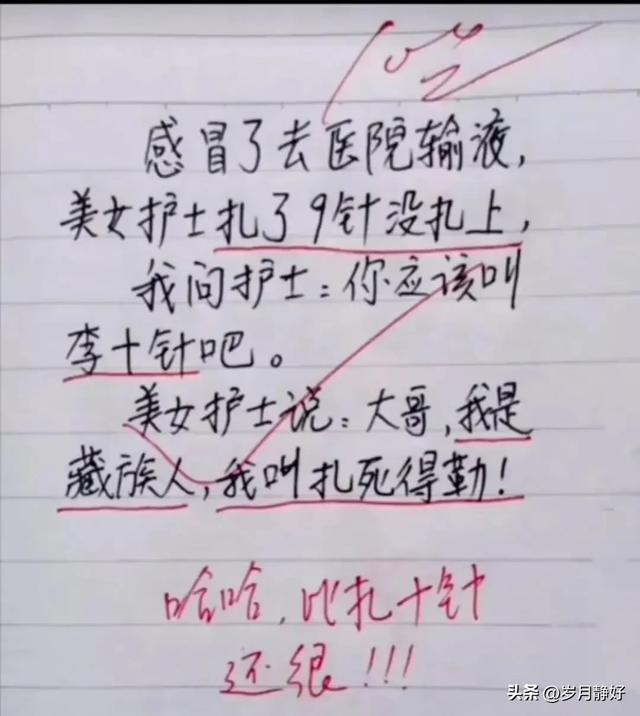 感冒了去医院输液，
美女护士扎了9针没扎上，
我问护士：你应该叫
李十针吧。
美女护士说：大哥，我是
藏族人，我叫扎死得勒！
哈哈，比扎十针
还很！！！
头条 @岁月静好